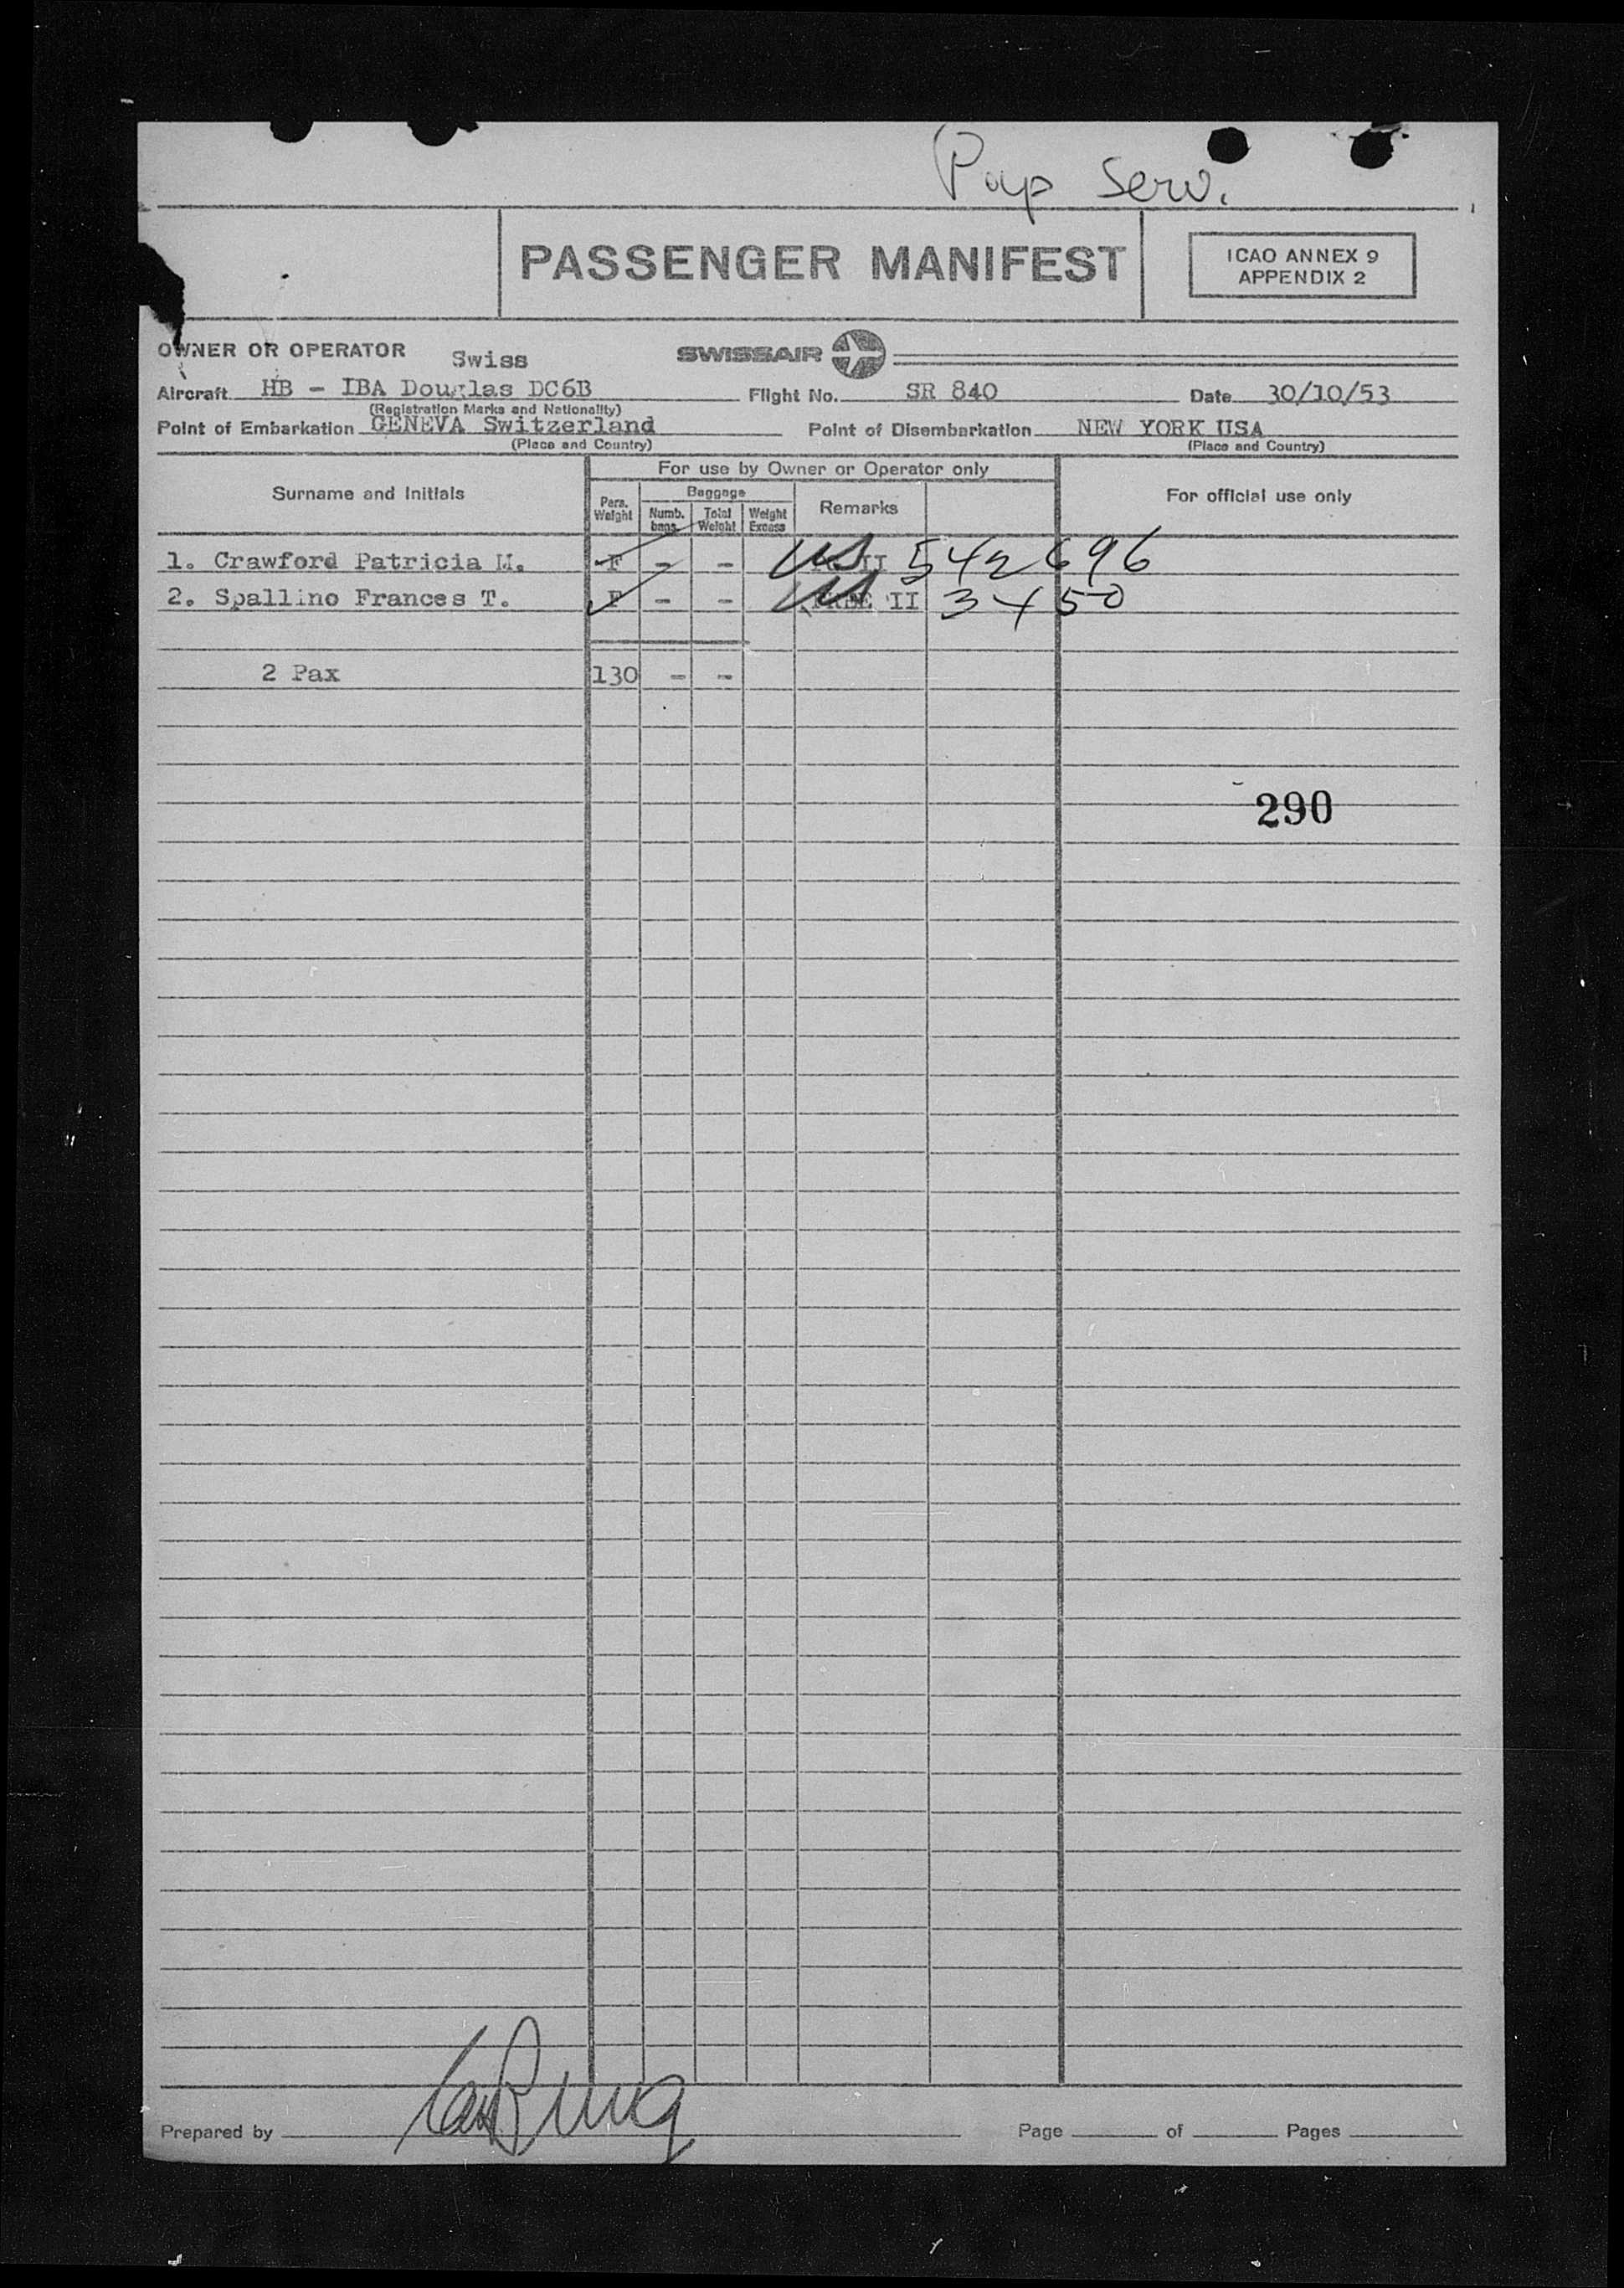 Pap Serv.
PASSENGER MANIFEST
ICAO ANNEX 9
APPENDIX 2
OWNER OR OPERATOR Swiss SWISSAIR
Aircraft HB - IBA Douglas DC6B Flight No. SR 840 Date 30/10/53
(Registration Marks and Nationality)
Point of Embarkation GENEVA Switzerland Point of Disembarkation NEW YORK USA
(Place and Country) (Place and Country)
For use by Owner or Operator only
Surname and Initials Pers. Weight Baggage Numb. bags Total Weight Weight Excess Remarks For official use only
1. Crawford Patricia M. F - - US II 542696
2. Spallino Frances T. F - - US FREE II 3450
2 Pax 130 - -
290
Prepared by Page of Pages